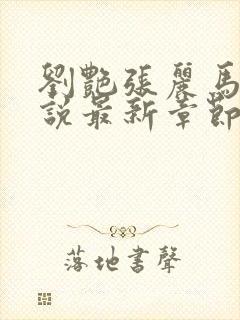 劉艷張麗馬
說最新章節
落地書聲